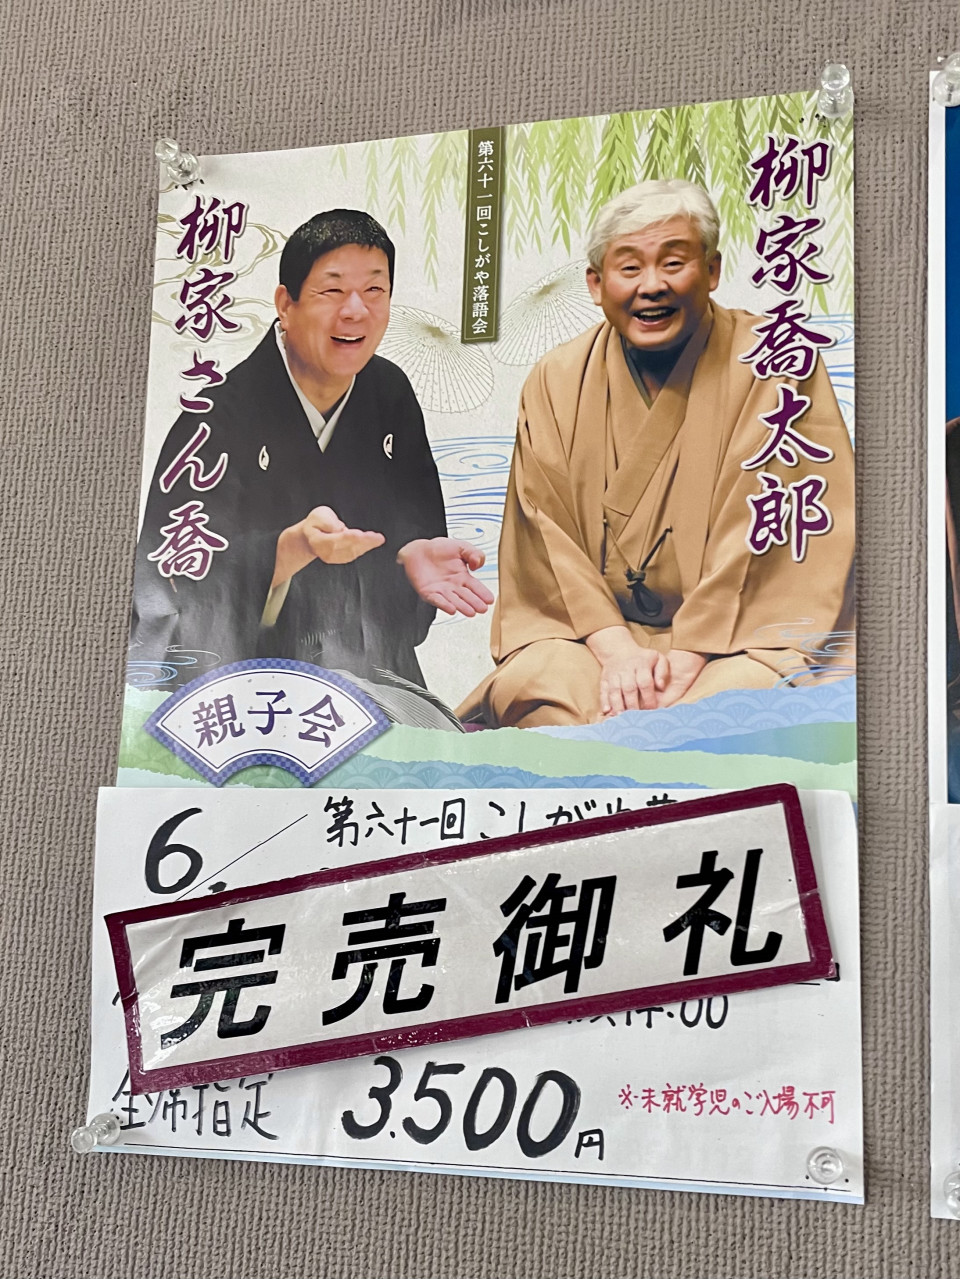 第六十一回こしがや落語会
柳家喬太郎
柳家さん喬
親子会
6
第六十一回こしがや
完売御礼
:00
全席指定
3,500円
※未就学児のご入場不可